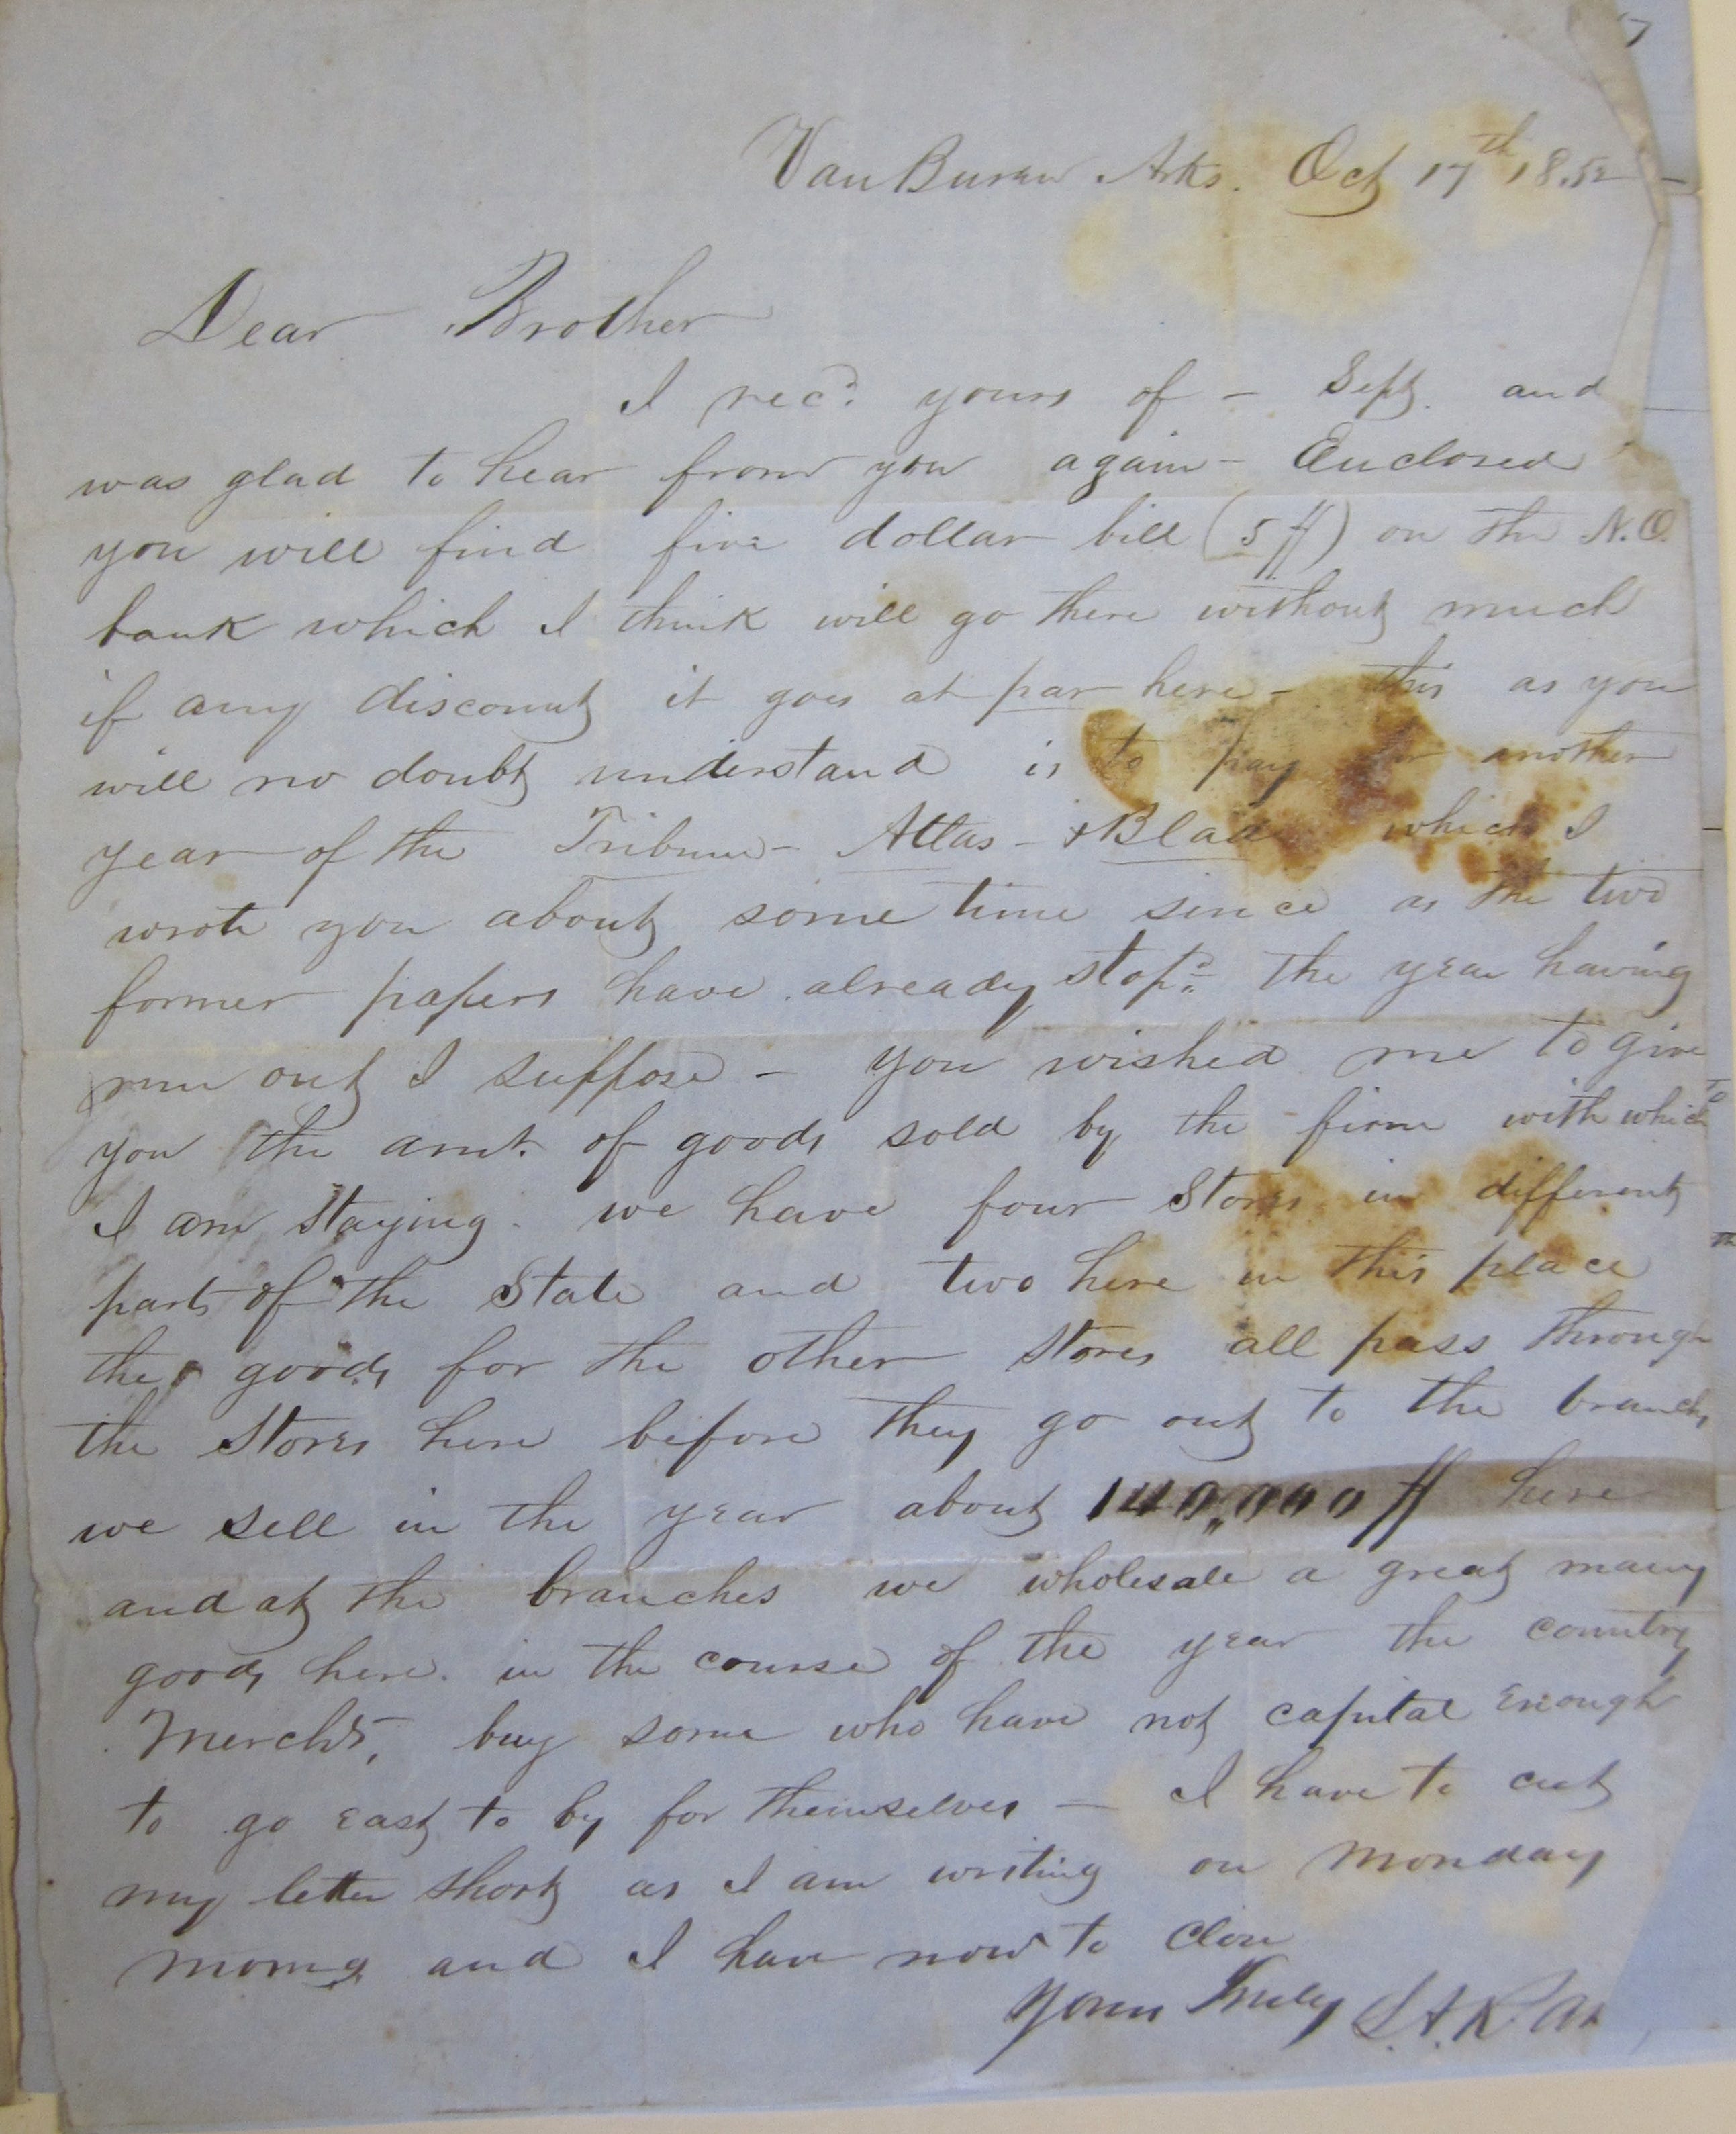 Van Buren Arks. Oct 17th 1852
Dear Brother
I recd. yours of - Sept. and
was glad to hear from you again - Enclosed
you will find five dollar bill (5 $) on the N.O.
bank which I think will go there without much
if any discount it goes at par here - this as you
will no doubt understand is to pay for another
year of the Tribune - Attas - & Blade which I
wrote you about some time since as the two
former papers have already stopd. the year having
run out I suppose - you wished me to give
you the amt. of goods sold by the firm with which
I am staying. we have four Stores in different
parts of the State and two here in this place
the goods for the other Stores all pass through
the Stores here before they go out to the branchs
we sell in the year about 140,000 $ here
and at the branches we wholesale a great many
goods here. in the course of the year the country
Merchts, buy some who have not capital enough
to go east to by for themselves - I have to cut
my letter short as I am writing on Monday
morng and I have now to close
Yours Truly